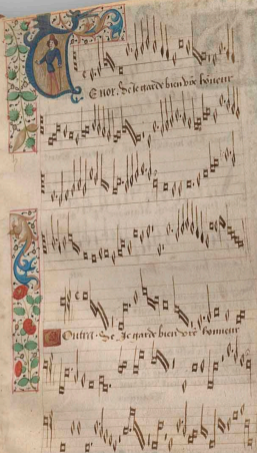 Tenor. Se Je garde bien v̄r̄e honneur
Contra. Se Je garde bien v̄r̄e honneur